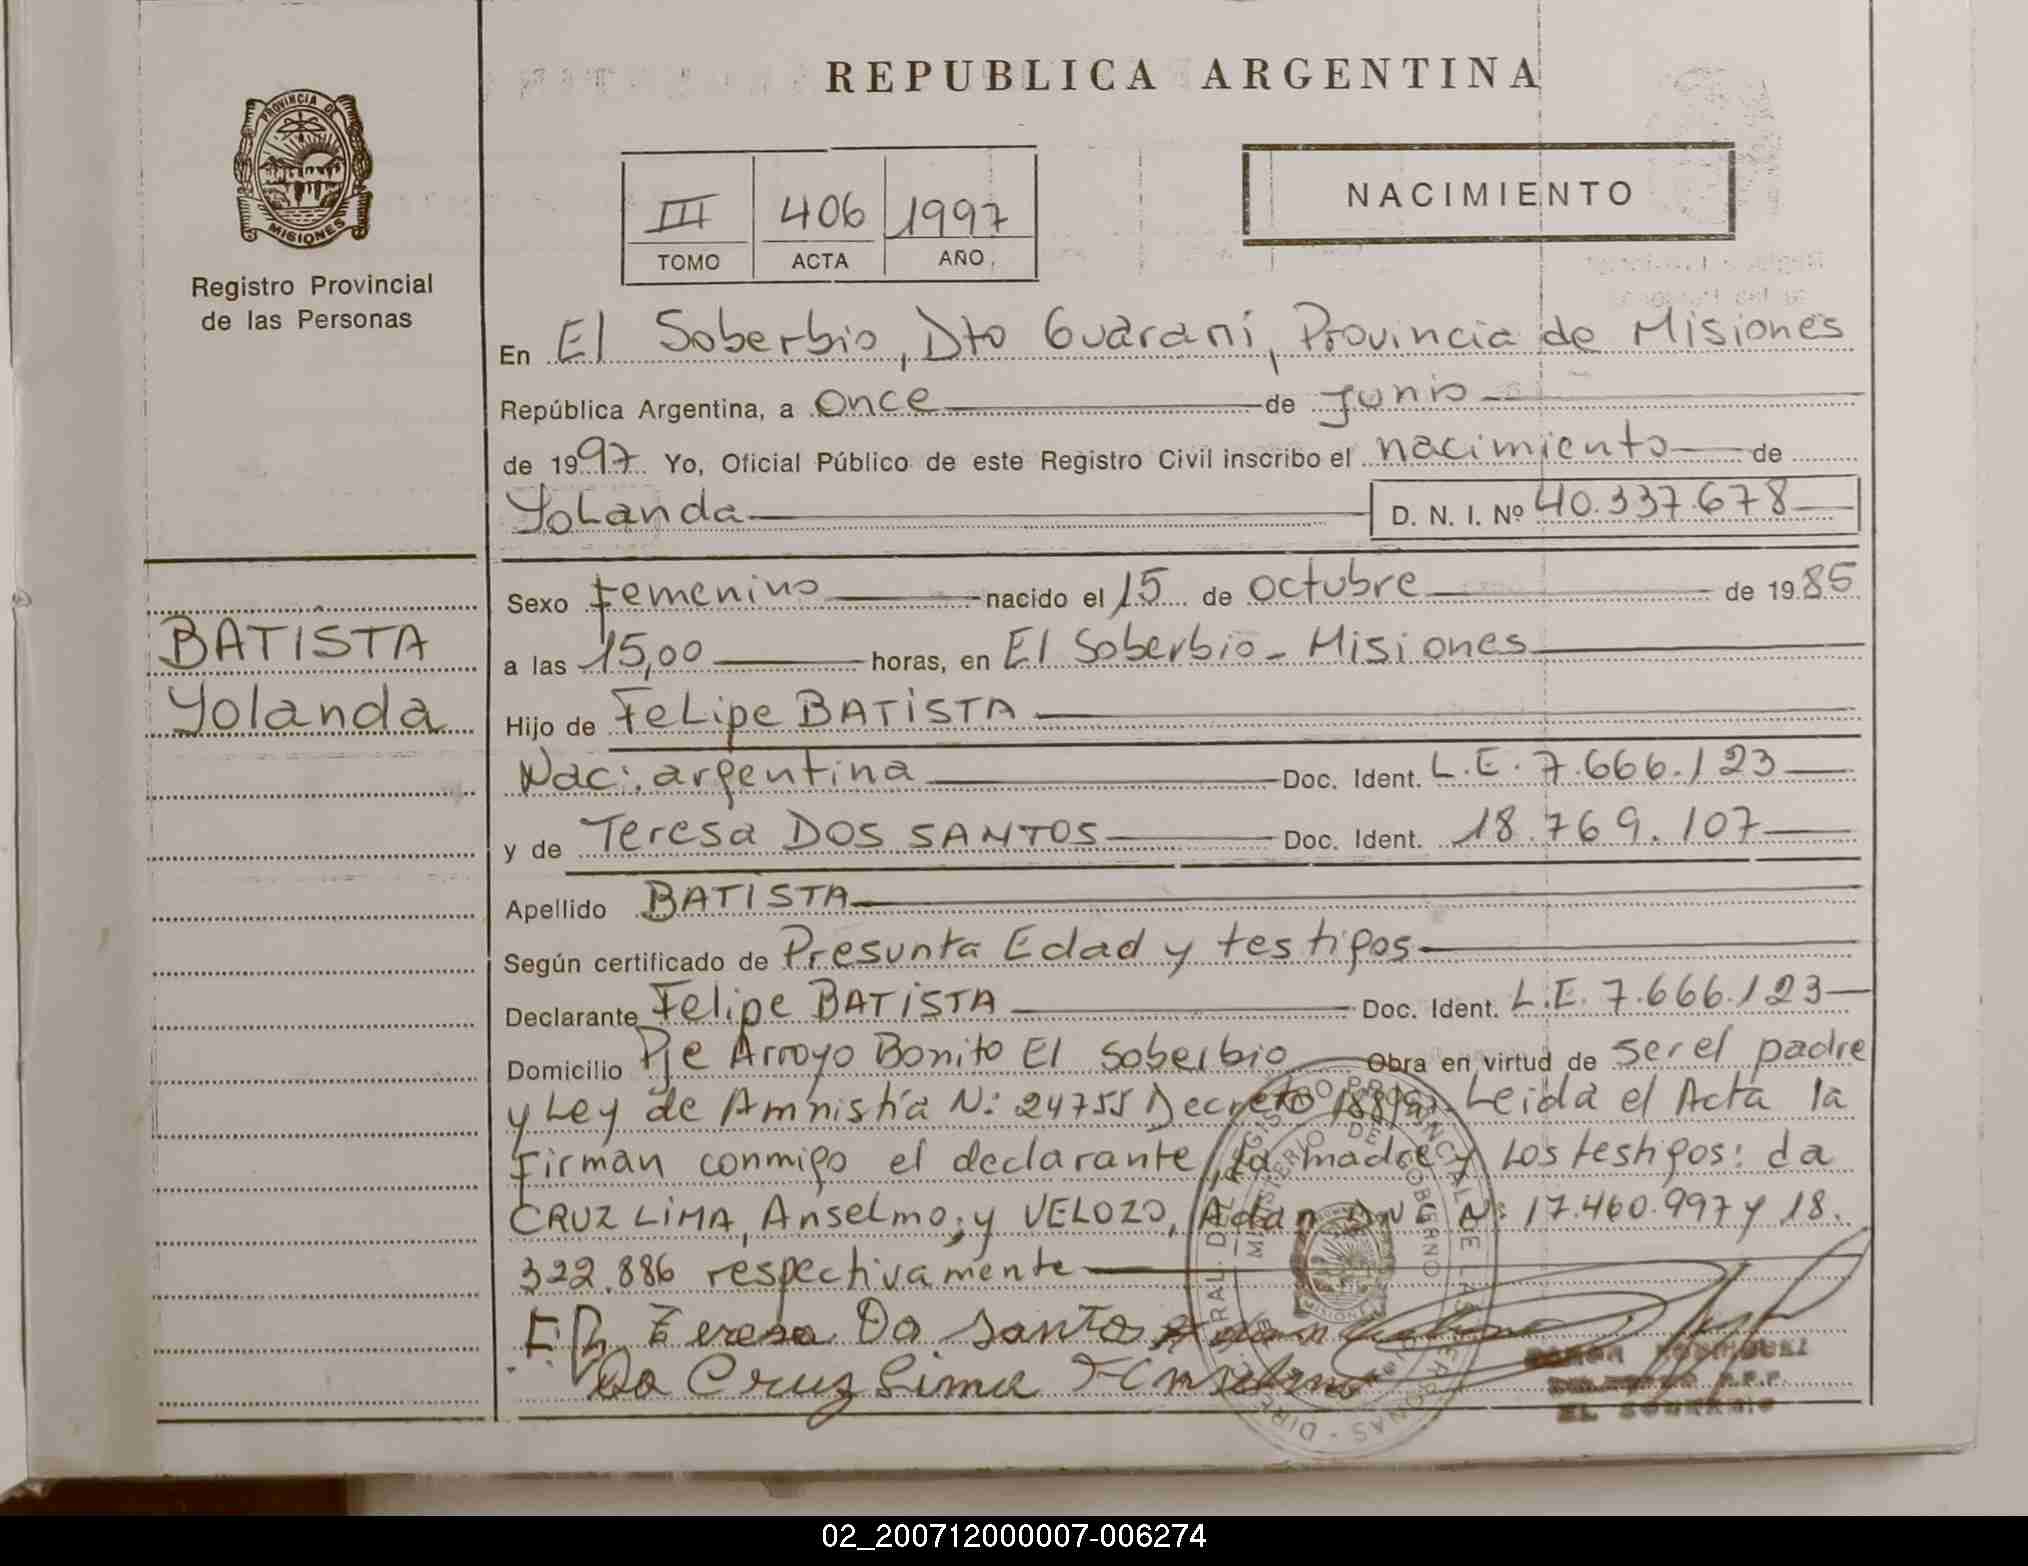 REPUBLICA ARGENTINA
PROVINCIA DE
MISIONES
Registro Provincial
de las Personas
III 406 1997
TOMO ACTA AÑO
NACIMIENTO
En El Soberbio, Dto Guaraní, Provincia de Misiones
República Argentina, a once de Junio
de 1997 Yo, Oficial Público de este Registro Civil inscribo el nacimiento de
Yolanda D. N. I. Nº 40.337.678
BATISTA
Yolanda
Sexo Femenino nacido el 15 de octubre de 1985
a las 15,00 horas, en El Soberbio - Misiones
Hijo de Felipe BATISTA
Nac: argentina Doc. Ident. L.E. 7.666.123
y de Teresa DOS SANTOS Doc. Ident. 18.769.107
Apellido BATISTA
Según certificado de Presunta Edad y testigos
Declarante Felipe BATISTA Doc. Ident. L.E. 7.666.123
Domicilio Pje Arroyo Bonito El Soberbio Obra en virtud de ser el padre
y Ley de Amnistía N: 24755 Decreto Leida el Acta la
Firman conmigo el declarante, la madre y los testigos: da
CRUZ LIMA, Anselmo; y VELOZO, Adan DNI N: 17.460.997 y 18.
322.886 respectivamente
Teresa Do Santos
Da Cruz Lima Anselmo
RAMON RODRIGUEZ
EL SOBERBIO
02_200712000007-006274